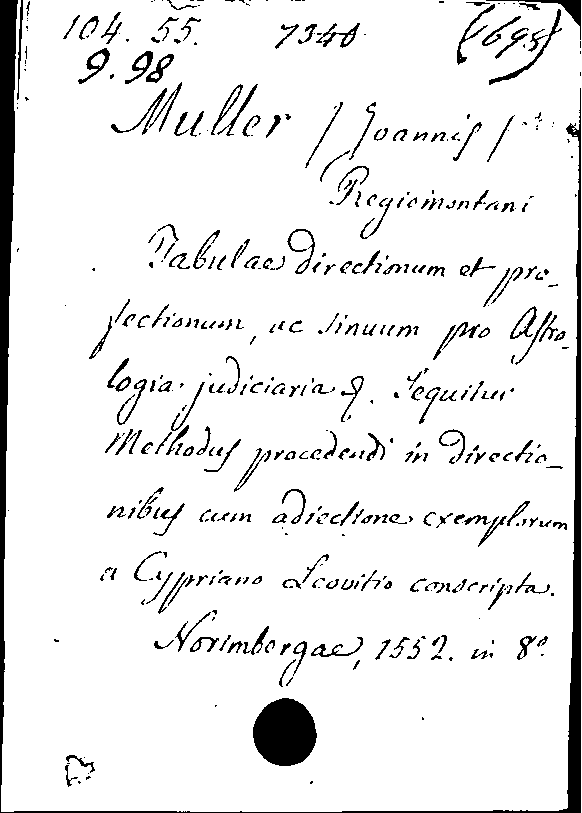 104. 55. 7340 (698)
9.98
Muller / Joannis /
Regiomontani
Tabulae directionum et pro-
fectionum, ac sinuum pro Astro-
logia judiciaria &. Sequitur
Methodus procedendi in directio-
nibus cum adiectione exemplorum
a Cypriano Leovitio conscripta.
Norimbergae, 1552. in 8º